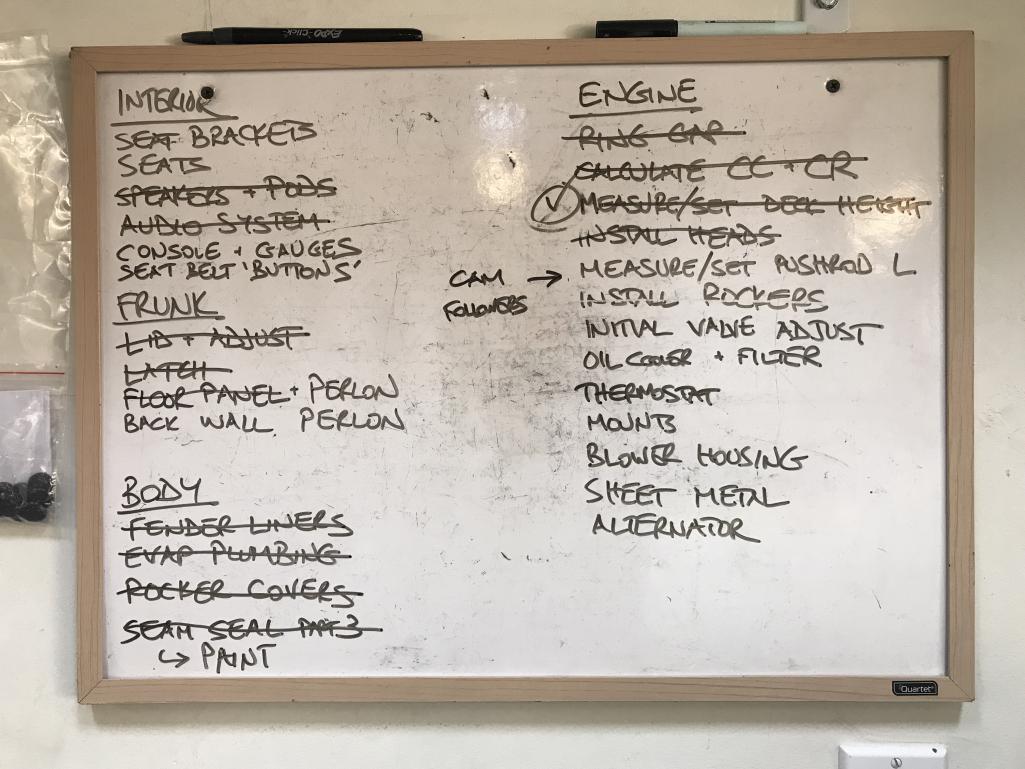 EXPO Click
INTERIOR
SEAT BRACKETS
SEATS
SPEAKERS + PODS
AUDIO SYSTEM
CONSOLE + GAUGES
SEAT BELT 'BUTTONS'
FRUNK
LID + ADJUST
LATCH
FLOOR PANEL + PERLON
BACK WALL PERLON
BODY
FENDER LINERS
EVAP PLUMBING
ROCKER COVERS
SEAM SEAL
↳ PAINT
ENGINE
RING GAP
CALCULATE CC + CR
MEASURE/SET DECK HEIGHT
INSTALL HEADS
CAM → MEASURE/SET PUSHROD L
FOLLOWERS
INSTALL ROCKERS
INITIAL VALVE ADJUST
OIL COOLER + FILTER
THERMOSTAT
MOUNTS
BLOWER HOUSING
SHEET METAL
ALTERNATOR
Quartet